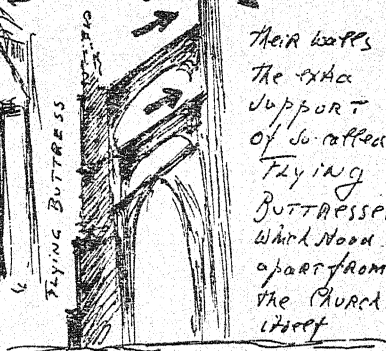 FLYING BUTTRESS
Their walls
The extra
support
of so-called
Flying
Buttresse
which stood
apart from
the Church
itself